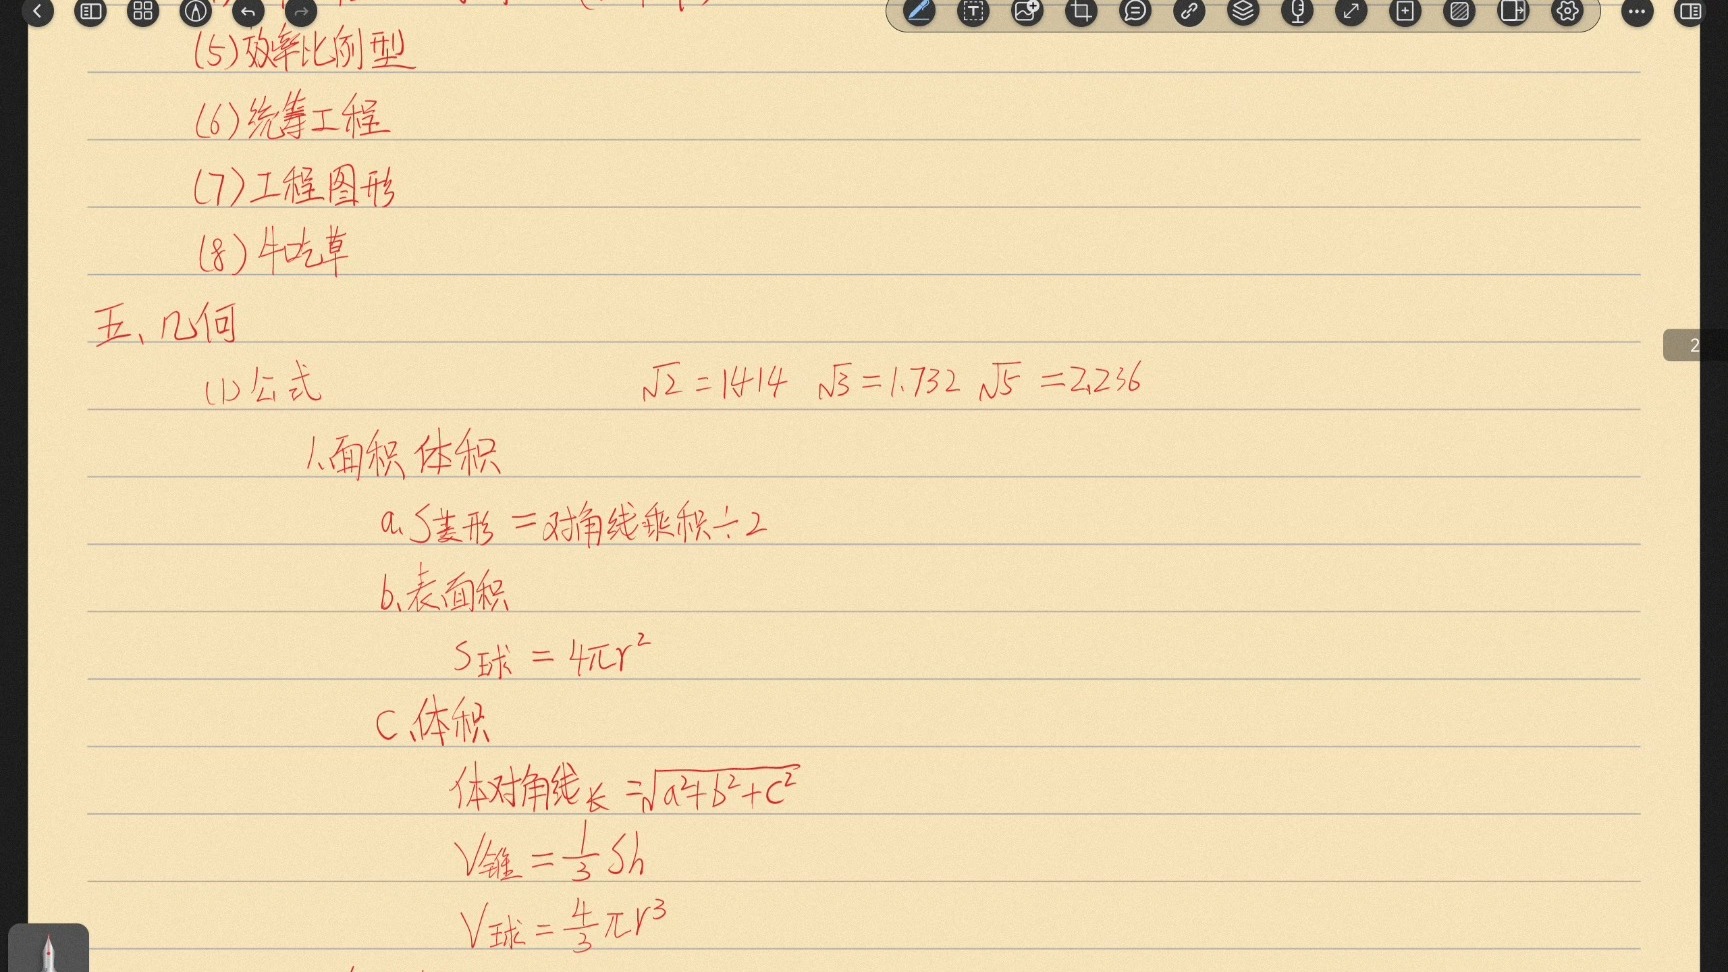 (5)效率比例型
(6)统筹工程
(7)工程图形
(8)牛吃草
五、几何
(1)公式 √2=1.414 √3=1.732 √5=2.236
1.面积 体积
a.S菱形=对角线乘积÷2
b.表面积
S球=4πr²
C.体积
体对角线长=√a²+b²+c²
V锥=1/3 Sh
V球=4/3 πr³
2